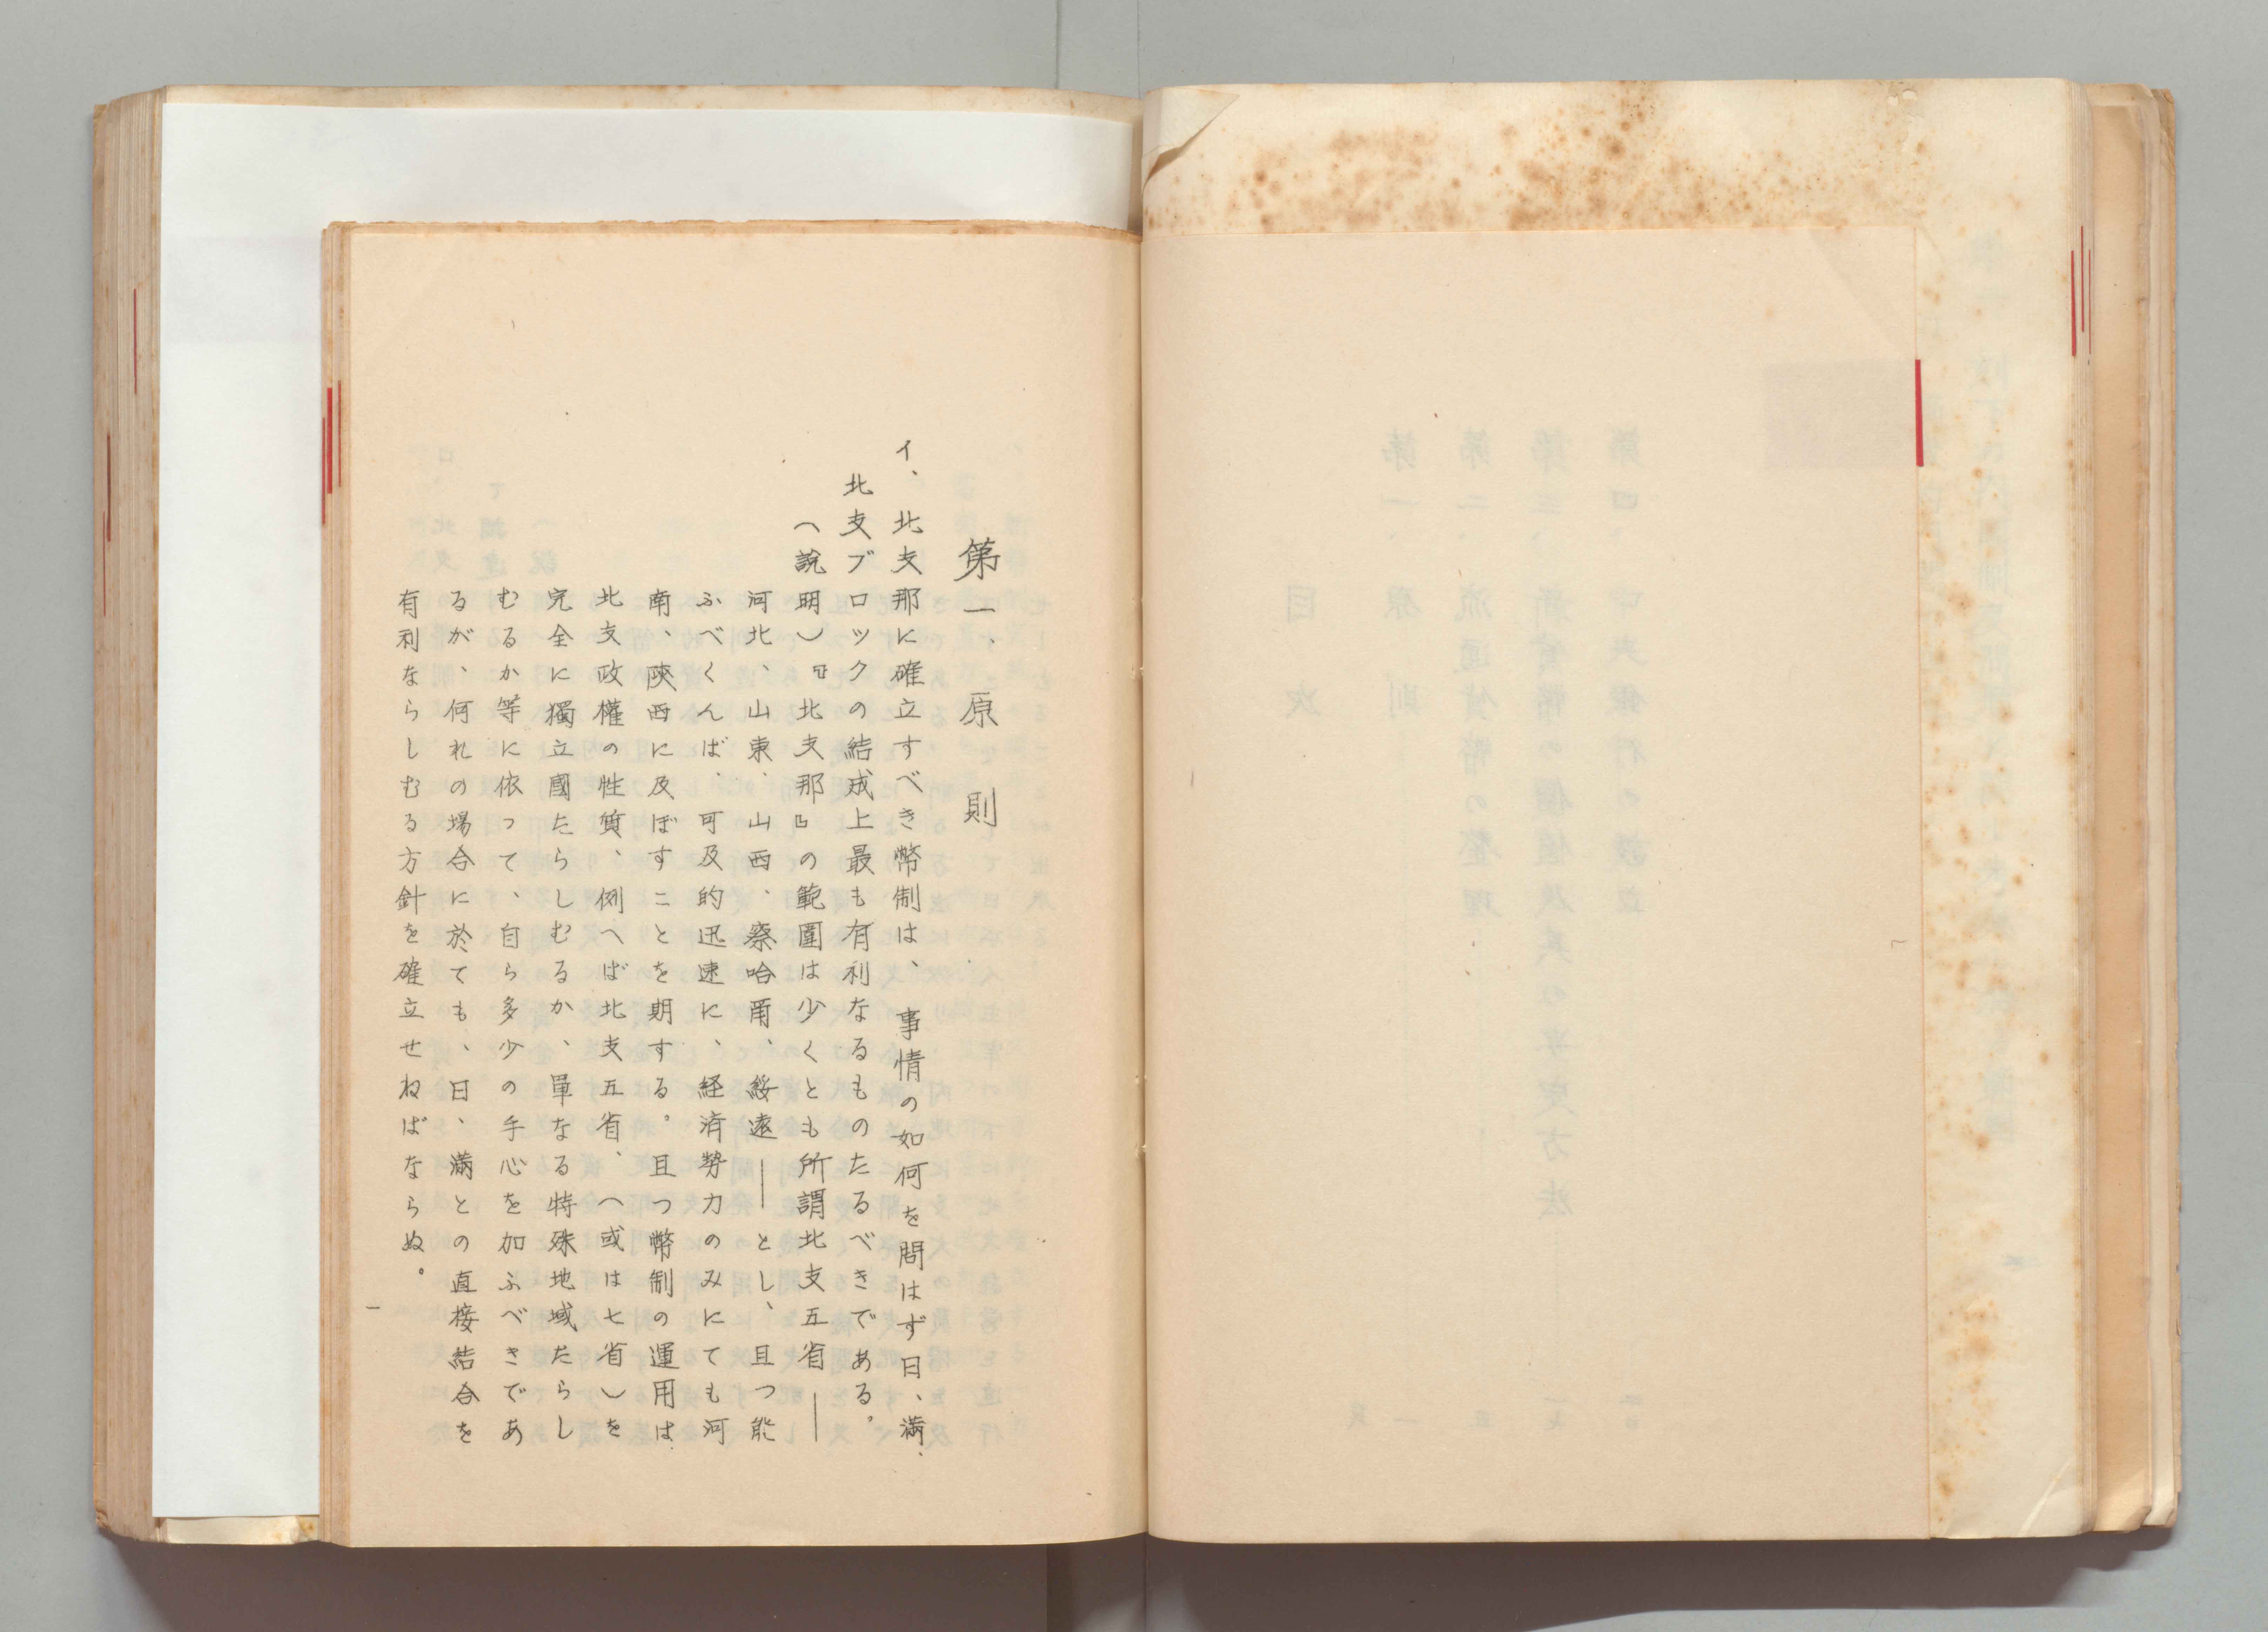 第一、原則
イ、北支那に確立すべき幣制は、事情の如何を問はず日、満、
北支ブロックの結成上最も有利なるものたるべきである。
（説明）『北支那』の範圍は少くとも所謂北支五省――
河北、山東、山西、察哈爾、綏遠――とし、且つ能
ふべくんば、可及的迅速に、経済勢力のみにても河
南、陝西に及ぼすことを期する。且つ幣制の運用は、
北支政權の性質、例へば北支五省、（或は七省）を
完全に獨立國たらしむるか、單なる特殊地域たらし
むるか等に依って、自ら多少の手心を加ふべきであ
るが、何れの場合に於ても、日、満との直接結合を
有利ならしむる方針を確立せねばならぬ。
一